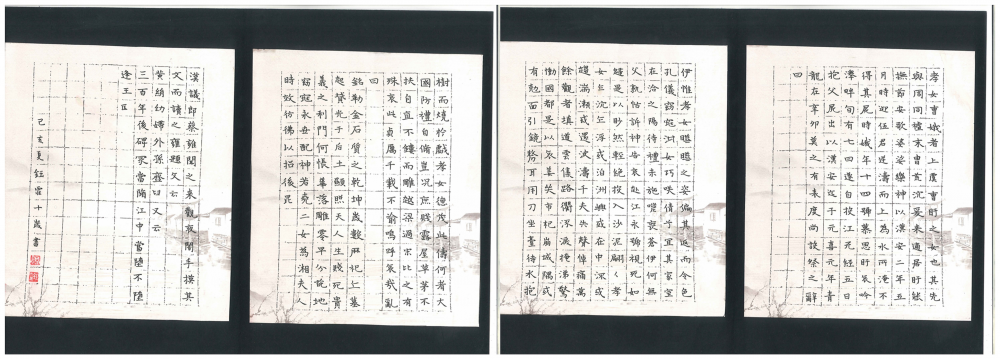 孝女曹娥者上虞曹盱之女也其先
與周同祖末胄荒沉爰来適居盱能
撫節安歌婆娑樂神以漢安二年五
月時迎伍君逆濤而上為水所淹不
得其屍時娥年十四號慕思盱哀吟
澤畔旬有七日遂自投江死經五日
抱父屍出以漢安迄于元嘉元年青
龍在辛卯莫之有表度尚設祭之辭
曰
伊惟孝女曄曄之姿偏其返而令色
孔儀窈窕淑女巧咲倩兮宜其家室
在洽之陽待禮未施嗟喪蒼伊何無
父孰怙訴神告哀赴江永號視死如
歸是以眇然輕絕投入沙泥翩翩孝
女乍沉乍浮或泊洲嶼或在中流或
趨湍瀨或還波濤千夫失聲悼痛萬
餘觀者填道雲集路衢泣淚掩涕驚
慟國都是以哀姜哭市杞崩城隅或
有剋面引鏡剺耳用刀坐臺待水抱
樹而燒於戲孝女德茂此儔何者大
國防禮自修豈況庶賤露屋草茅不
扶自直不鏤而雕越梁過宋比之有
殊哀此貞厲千載不渝嗚呼哀哉亂
曰
銘勒金石質之乾坤歲數曆祀丘墓
起墳光于后土顯照天人生賤死貴
義之利門何悵華落雕零早分葩艷
窈窕永世配神若堯二女為湘夫人
時效仿佛以招後昆
漢議郎蔡雍聞之来觀夜闇手摸其
文而讀之雍題文云
黃絹幼婦外孫齏臼又云
三百年後碑冢當墮江中當墮不墮
逢王叵
己亥夏鈺霖十歲書